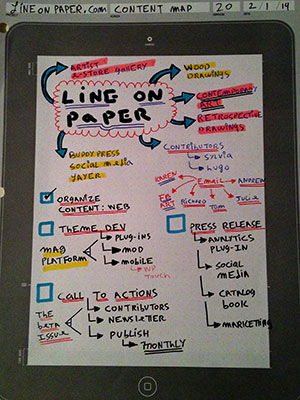 LINE ON PAPER.COM CONTENT MAP 20 2/1/14
ARTIST
E-STORE GALLERY
WOOD
DRAWINGS
LINE ON
PAPER
CONTEMPORARY
ART
RETROSPECTIVE
DRAWINGS
BUDDYPRESS
SOCIAL MEDIA
LAYER
CONTRIBUTORS
SYLVIA
HUGO
KAREN
EMAIL
ANDREA
ORGANIZE
CONTENT: WEB
FB
ART
RICHARD
TOM
JULIE
THEME DEV
PLUG-INS
MAG
PLATFORM
MOD
MOBILE
WP
TOUCH
PRESS RELEASE
ANALYTICS
PLUG-IN
SOCIAL
MEDIA
CATALOG
BOOK
MARKETING
CALL TO ACTIONS
THE
BETA
ISSUE
CONTRIBUTORS
NEWSLETTER
PUBLISH
MONTHLY